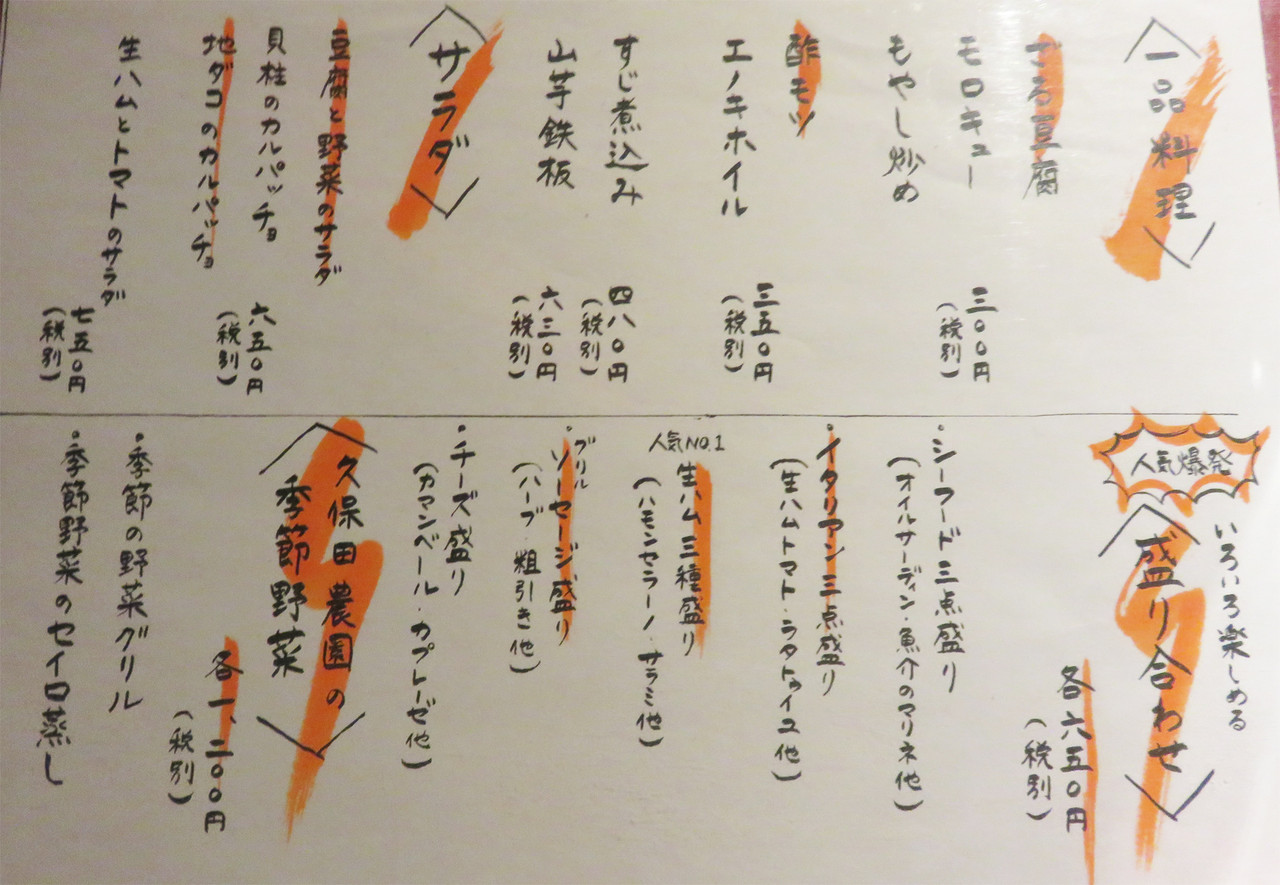 〈一品料理〉
ざる豆腐
モロキュー
もやし炒め
三〇〇円
(税別)
酢モツ
エノキホイル
三五〇円
(税別)
すじ煮込み
四八〇円
(税別)
山芋鉄板
六三〇円
(税別)
〈サラダ〉
豆腐と野菜のサラダ
貝柱のカルパッチョ
地ダコのカルパッチョ
六五〇円
(税別)
生ハムとトマトのサラダ
七五〇円
(税別)
人気爆発
いろいろ楽しめる
〈盛り合わせ〉
各六五〇円
(税別)
・シーフード三点盛り
(オイルサーディン・魚介のマリネ他)
・イタリアン三点盛り
(生ハムトマト・ラタトゥイユ他)
人気NO.1
生ハム三種盛り
(ハモンセラーノ・サラミ他)
・グリルソーセージ盛り
(ハーブ・粗引き他)
・チーズ盛り
(カマンベール・カプレーゼ他)
〈久保田農園の
季節野菜〉
各一、二〇〇円
(税別)
・季節の野菜グリル
・季節野菜のセイロ蒸し